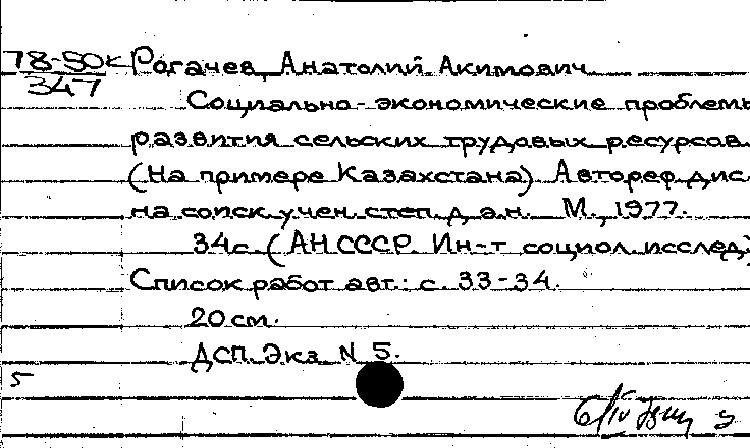 78-50к Рогачев, Анатолий Акимович
347
Социально-экономические проблемы
развития сельских трудовых ресурсов.
(На примере Казахстана). Автореф. дис.
на соиск. учен. степ. д.э.н. М., 1977.
34с. (АН СССР. Ин-т социол. исслед.)
Список работ авт.: с. 33-34.
20 см.
ДСП. Экз. N 5.
5